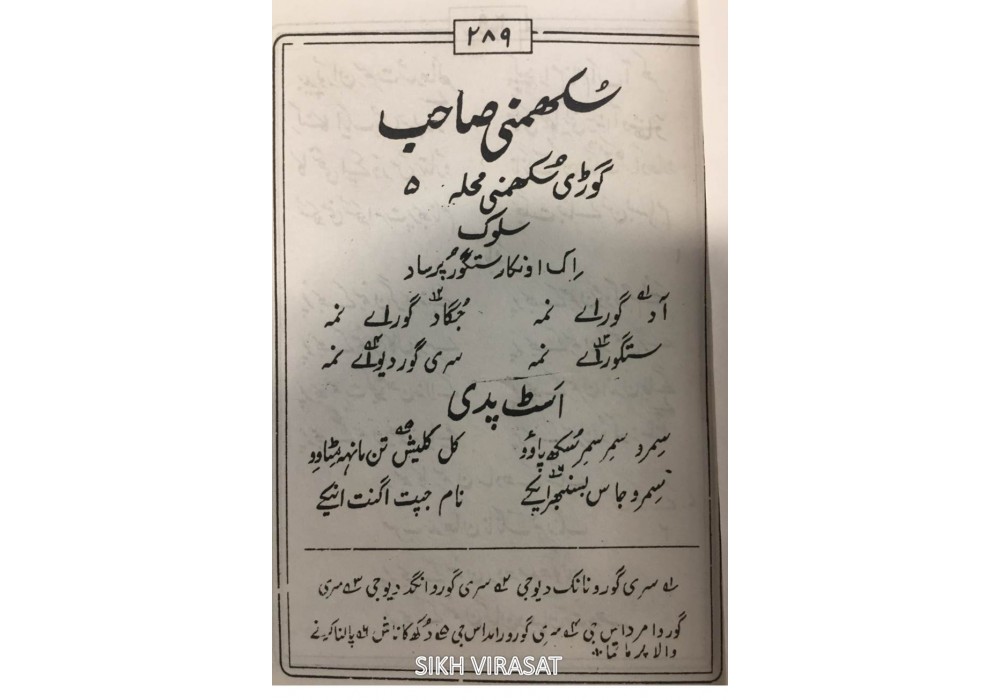 ۲۸۹
سُکھمنی صاحب
گوڑی سُکھمنی محلہ ۵
سلوک
اِک اونکار ستگورُ پرساد
آد۱ گوراے نمہ جُگاد۲ گوراے نمہ
ستگوراے۳ نمہ سری گوردیواے۴ نمہ
اسٹ پدی
سِمرو سمِر سمِر سُکھ پاوُو کل کلیش۵ تن مانہہ مِٹاوِو
سِمرو جاس بسنبھر۶ ایکے نام جپت اگنت انیکے
۱ے سری گورو نانک دیو جی ۲ے سری گورو انگد دیو جی ۳ے سری
گورو امرداس جی ۴ے سری گورو رامداس جی ۵ے دُکھ کا ناش ۶ے پالنا کرنے
والا پرماتما
SIKH VIRASAT